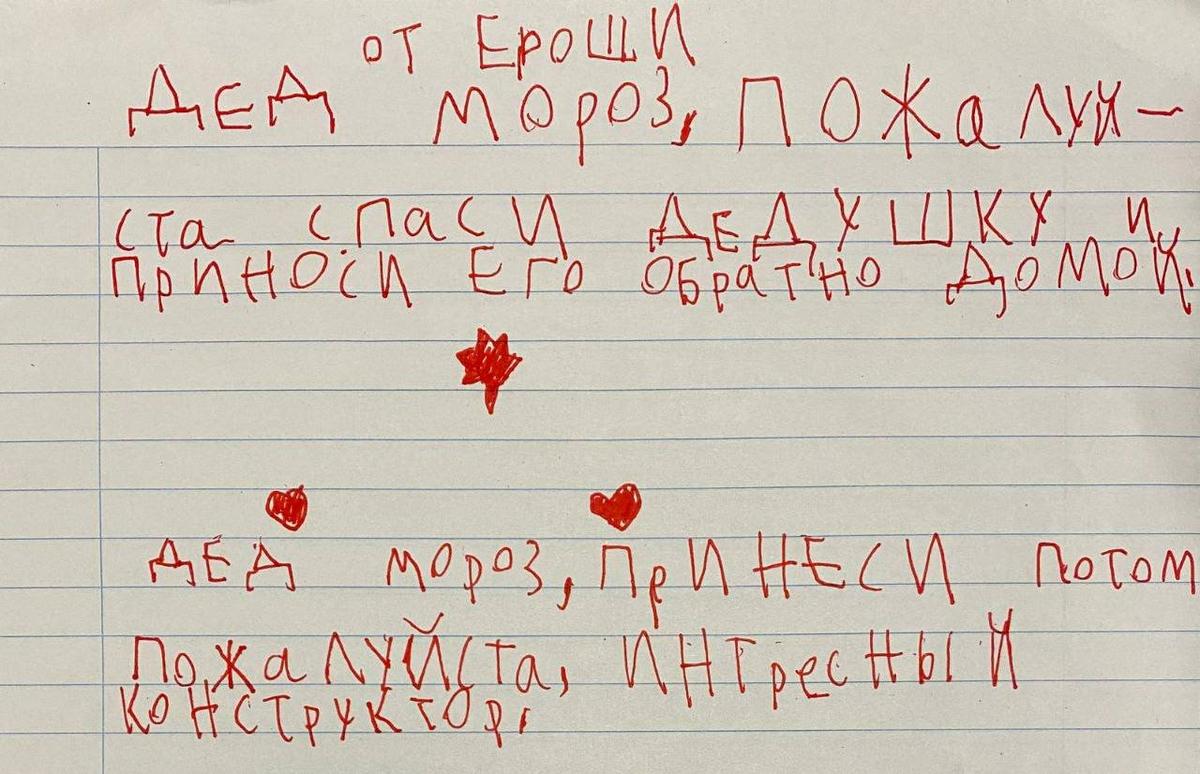 от Ероши
ДЕД МОРОЗ, ПОЖаЛУЙ-
ста спаси ДЕДУШКУ И
ПРИНОСИ ЕГО обратно ДОМОЙ.
ДЕД МОРОЗ, ПрИНЕСИ потом
ПожаЛУЙста, ИНТресный
конструктор,